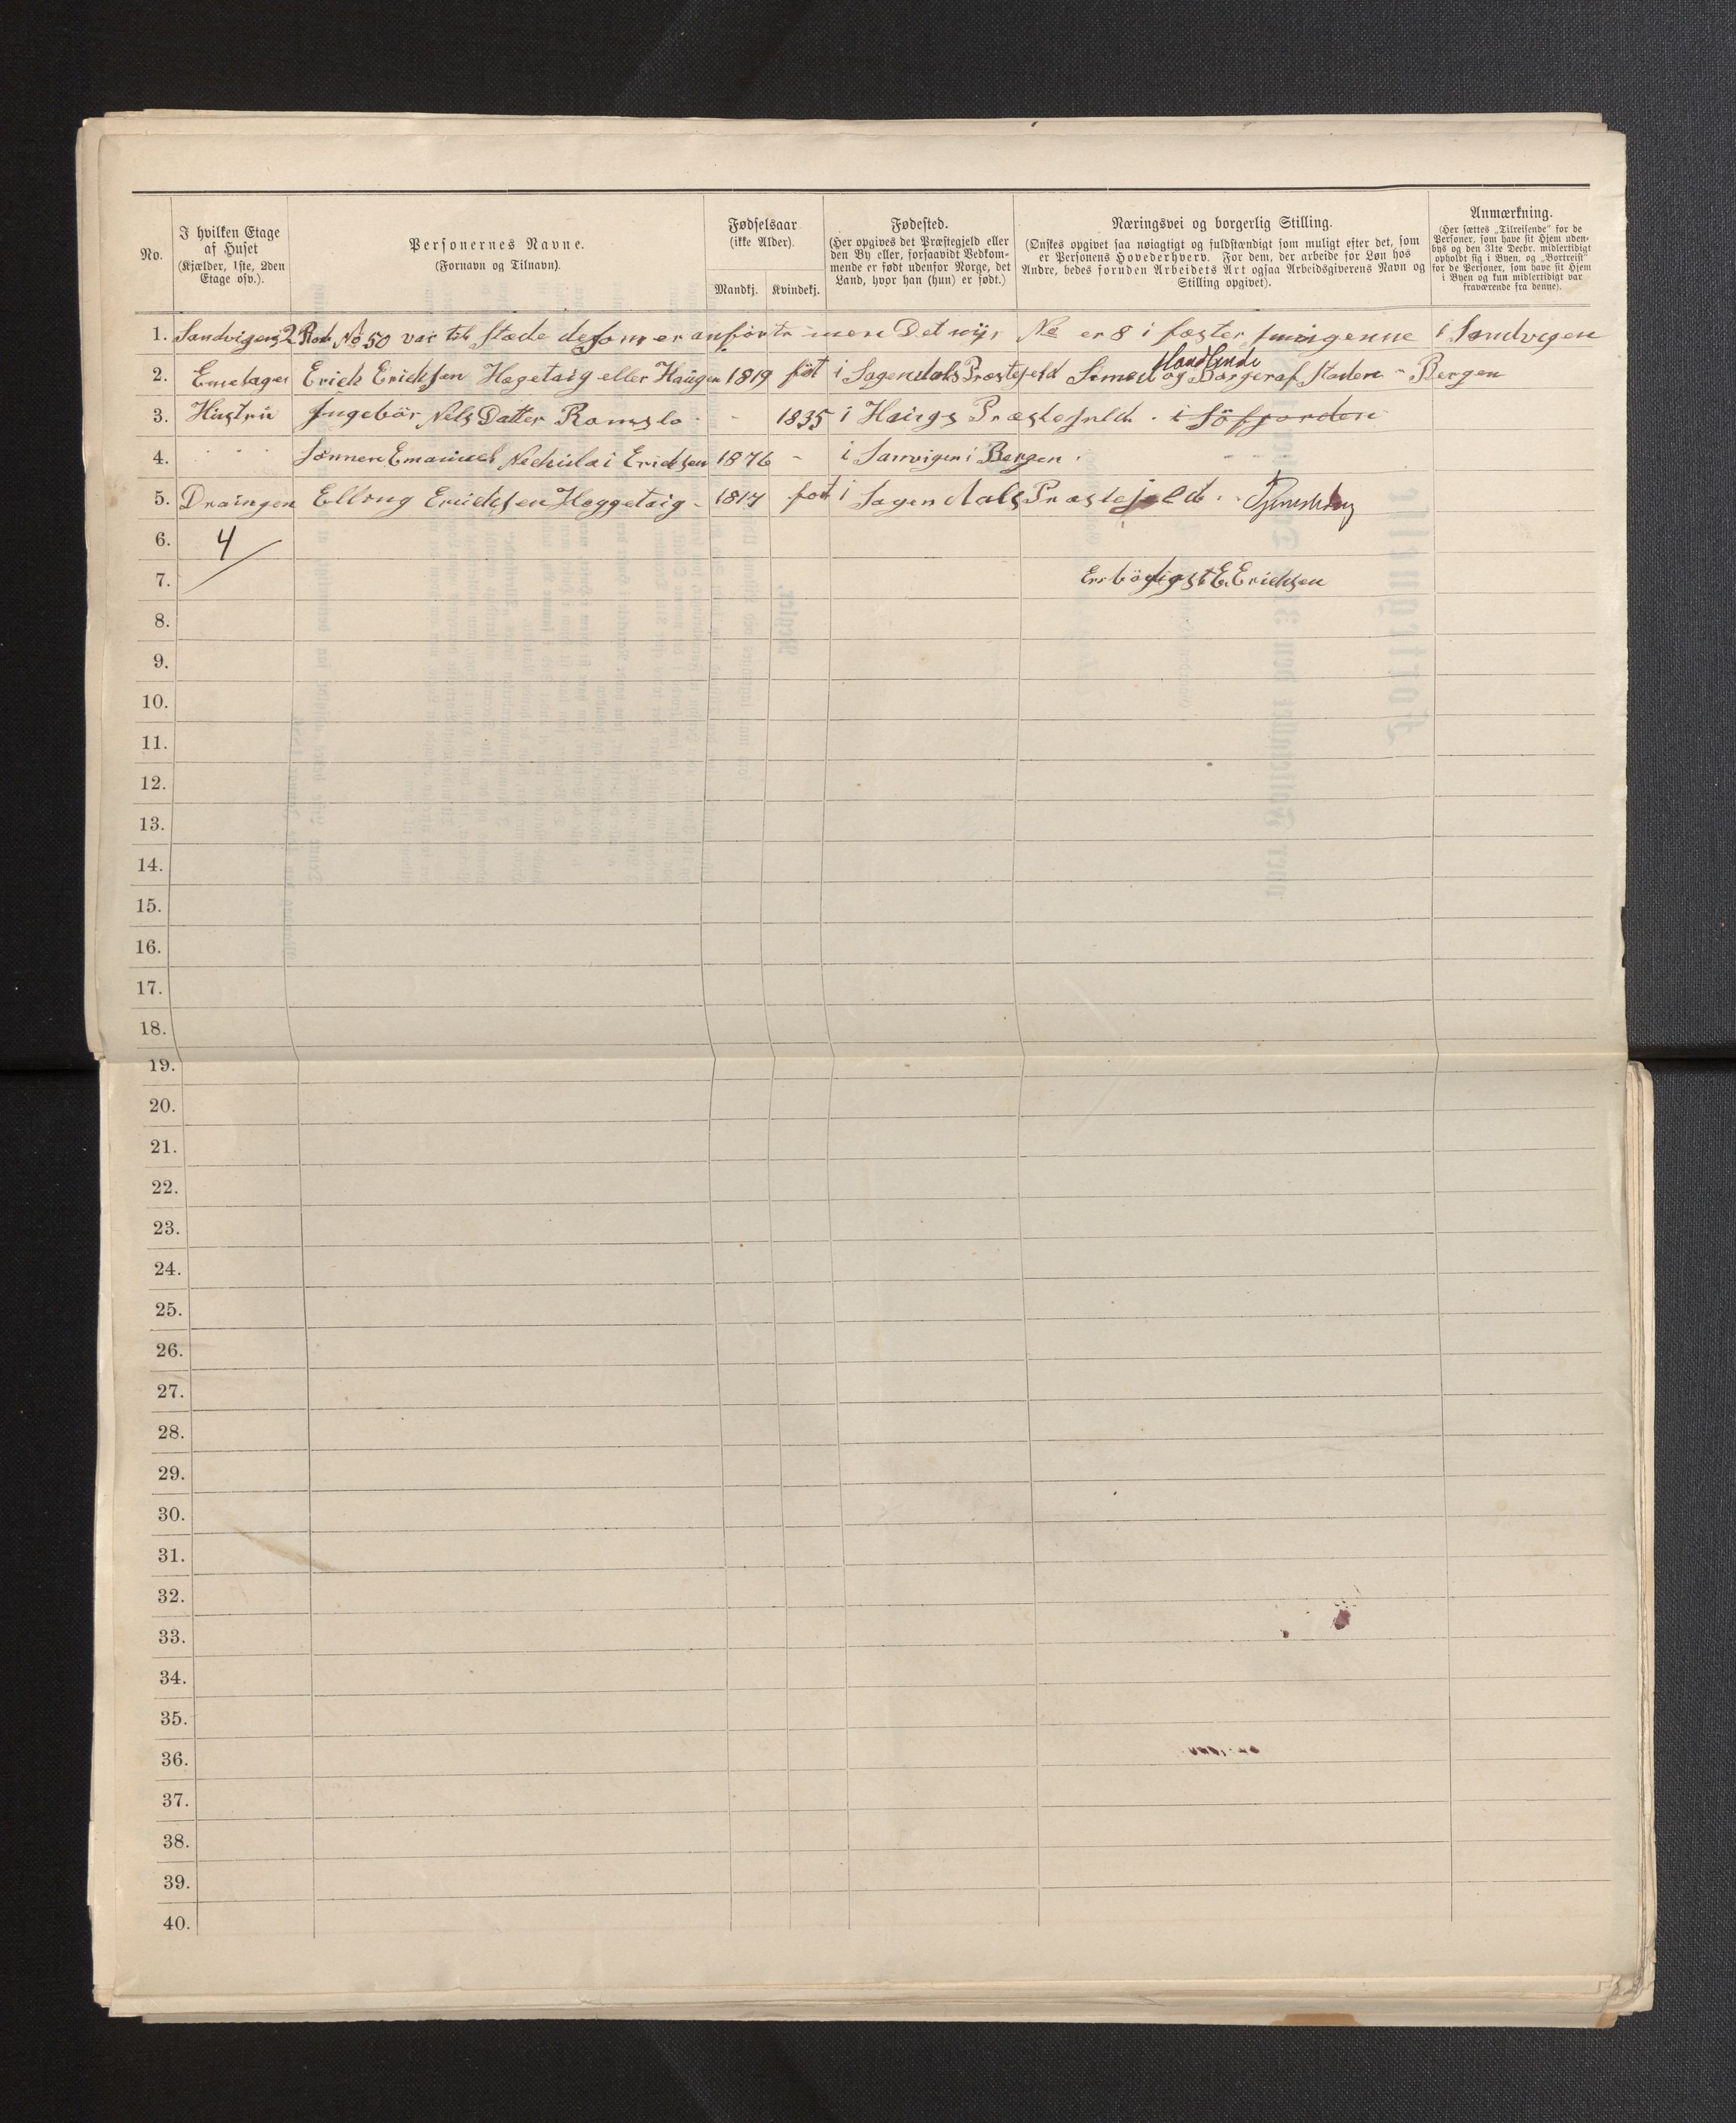 No.
I hvilken Etage
af Huset
(Kjælder, 1ste, 2den
Etage osv.).
Personernes Navne.
(Fornavn og Tilnavn).
Fødselsaar
(ikke Alder).
Mandkj. Kvindekj.
Fødested.
(Her opgives det Præstegjeld eller
den By eller, forsaavidt Vedkom-
mende er født udenfor Norge, det
Land, hvor han (hun) er født.)
Næringsvei og borgerlig Stilling.
(Ønskes opgivet saa nøiagtigt og fuldstændigt som muligt efter det, som
er Personens Hovederhverv. For dem, der arbeide for Løn hos
Andre, bedes foruden Arbeidets Art ogsaa Arbeidsgiverens Navn og
Stilling opgivet).
Anmærkning.
(Her sættes „Tilreisende" for de
Personer, som have sit Hjem uden-
bys og den 31te Decbr. midlertidigt
opholdt sig i Byen, og „Bortreist"
for de Personer, som have sit Hjem
i Byen og kun midlertidigt var
fraværende fra denne).
1. Sandvigens 2 Rode No 50 var til stæde de som er anførte men Det nyi No er 8 i fæster i Sandvigen
2. Erick Ericksen Hegetaig eller Haugen 1819 föt i Præstegeld Simed og Handlende Borger af Staden - Bergen
3. Hustru Ingebör Nels Datter Romslo - - 1835 i Haugs Præstegield . i Söfjorden
4. Sönnen Emanuel Nickulai Ericksen 1876 - i Sanvigen i Bergen .
5. Draingen Elling Ericksen Heggetaig - 1817 föt i Præstegeld
6. 4
7. Erbödigst E. Ericksen
8.
9.
10.
11.
12.
13.
14.
15.
16.
17.
18.
19.
20.
21.
22.
23.
24.
25.
26.
27.
28.
29.
30.
31.
32.
33.
34.
35.
36.
37.
38.
39.
40.